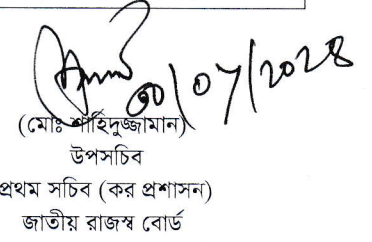 ৩০/০৭/২০২৪
(মোঃ শাহিদুজ্জামান)
উপসচিব
প্রথম সচিব (কর প্রশাসন)
জাতীয় রাজস্ব বোর্ড